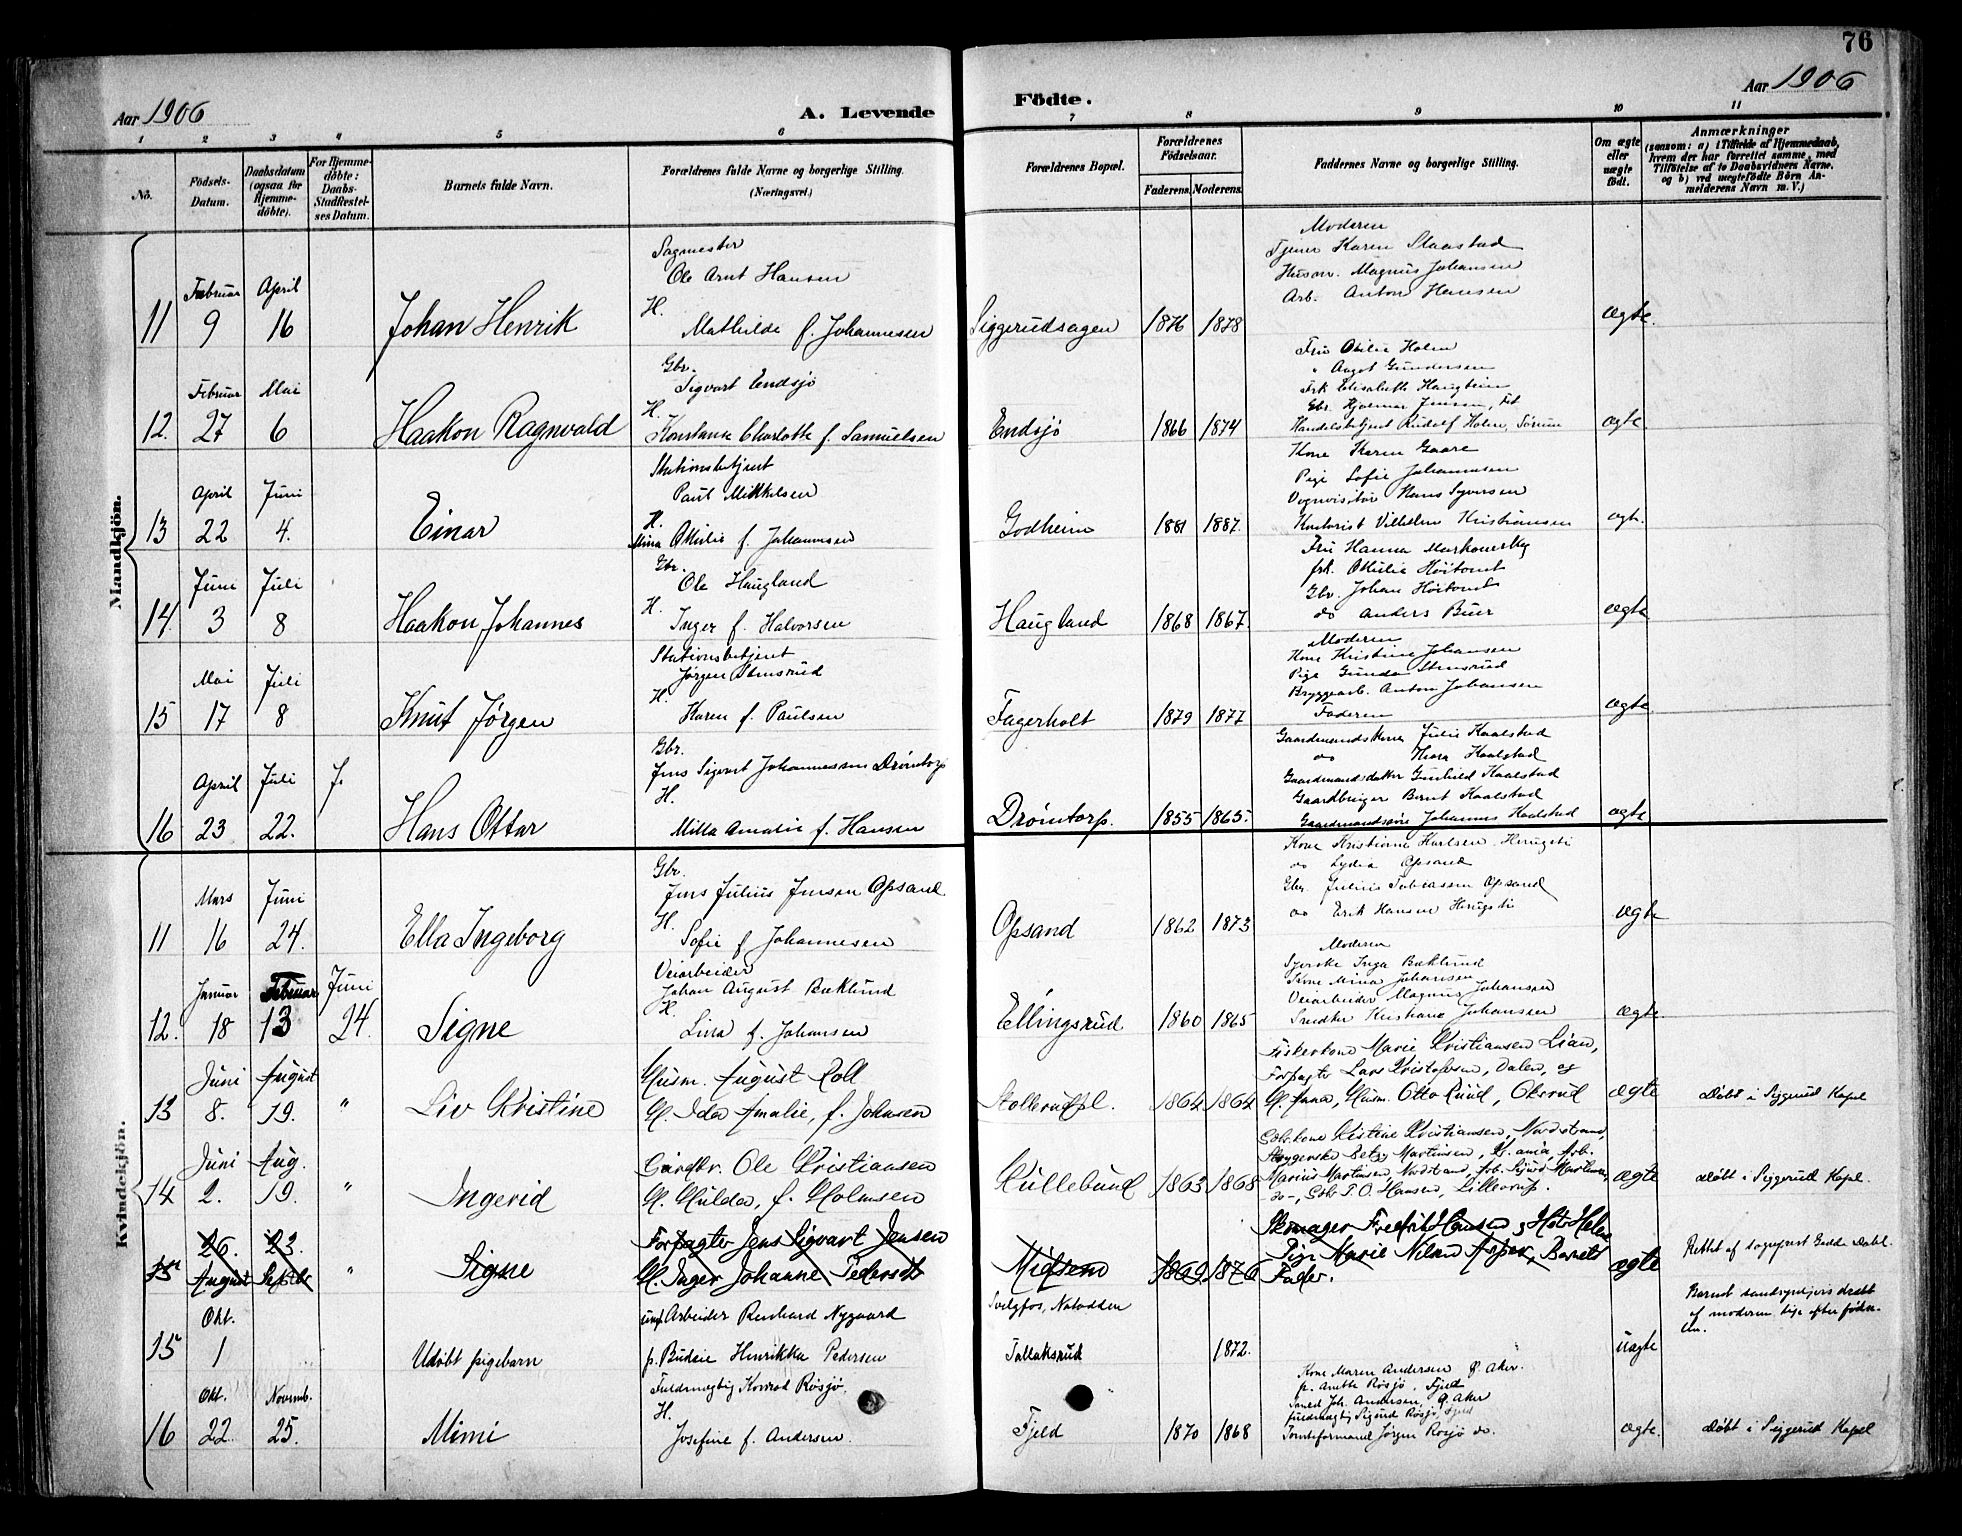 76
Aar 1906
A. Levende
Födte.
Aar 1906
1 2 3 4 5 6 7 8 9 10 11
No.
Födsels-Datum.
Daabsdatum (ogsaa for Hjemmedöbte).
For Hjemmedöbte: Daabs-Stadfæstelses Datum.
Barnets fulde Navn.
Forældrenes fulde Navne og borgerlige Stilling. (Næringsvei.)
Forældrenes Bopæl.
Forældrenes Födselsaar.
Faderens. Moderens.
Faddernes Navne og borgerlige Stilling.
Om ægte eller uægte födt.
Anmærkninger
(saasom: a) i Tilfælde af Hjemmedaab, hvem der har forrettet samme, med Tilföielse af to Daabsvidners Navne, og b) ved uægtefödte Börn Anmelderens Navn m. V.)
Mandkjön.
11 Februar 9 April 16 Johan Henrik
Sagmester
Ole Arnt Hansen
H.
Mathilde f. Johannesen
Siggerudsagen 1876 1878
Moderen
Tjener Karen Staastad
Husm. Magnus Johansen
Arb. Anton Hansen
ægte.
12. Februar 27 Mai 6 Haakon Ragnvald
Gbr.
Sigvart Endsjö
H.
Konstanse Charlotte f. Samuelsen
Endsjö 1866 1874
Fru Otilie Holm
" Aagot Gundersen
Frk Elisabeth Haugstein
Gbr. Hjalmar Jensen, Fet
Handelsbetjent Rudolf Holm, Sörum
ægte
13 April 22 Juni 4. Einar
Stationsbetjent
Paul Mikkelsen
H.
Mina Otilie f. Johannesen
Godheim 1881 1887.
Kone Karen Gaare
Pige Sofie Johannesen
Vognvisitør Hans Syversen
Kontorist Vilhelm Kristiansen
ægte.
14. Juni 3 Juli 8 Haakon Johannes
Gbr.
Ole Haugland
H.
Inger f. Halvorsen
Haugland 1868 1867.
Fru Hanna
frk. Otilie Höitomt
Gbr. Johan Höitomt
do Anders Buer
ægte
15 Mai 17 Juli 8 Knut Jørgen
Stationsbetjent
Jørgen Stensrud
H.
Karen f. Paulsen
Fagerholt 1879 1877
Moderen
Kone Kristine Johansen
Pige Gunda Stensrud
Bryggearb. Anton Johansen
Faderen
ægte
16 April 23 Juli 22. J. Hans Ottar
Gbr.
Jens Sigvart Johannessen Drömtorp
H.
Milla Amalie f. Hansen
Drömtorp. 1855 1865.
Gaardmandskone Julie Kaalstad
do Thora Kaalstad
Gaardmandsdatter Gunhild Kaalstad
Gaardbruger Bernt Kaalstad
Gaardmandssön Johannes Kaalstad
ægte
Kvindekjön.
11 Mars 16 Juni 24. Ella Ingeborg
Gbr.
Jens Julius Jensen Opsand
H.
Sofie f Johannesen
Opsand 1862 1873
Kone Kristiane Karlsen
do Lydia Opsand
Gbr. Julius Tobiassen Opsand
do Erik Hansen
ægte
12. Januar 18 Februar 13 Juni 24. Signe
Veiarbeider
Johan August Bæklund
H.
Lina f. Johansen
Ellingsrud 1860 1865
Moderen
Syerske Inga Bæklund
Kone Mina Johansen
Veiarbeider Magnus Johansen
Snedker Kristian Johansen
ægte.
13 Juni 8. August 19. " Liv Kristine
Husm. August Roll
H. Ida Amalie, f. Johnsen
Stollerudpl. 1864 1864
Fiskerkone Marie Kristiansen Lian,
Forpagter Lars Kristofersen, Dalen, og
H. Anna, Husm. Otto Ruud, Oksrud
ægte
Döbt i Siggerud Kapel
14 Juni 2. Aug. 19. " Ingerid
Gårdbr. Ole Kristiansen
H. Hulda, f. Holmsen
Kullebund 1863 1868
Gbr.kone Kistine Kristiansen, Nordstrand,
Martinsen, Kr.ania, Arb.
Marius Martinsen Nordstrand, Arb. Sigurd Martinsen
do-, Gbr P.O. Hansen, Lillerup.
ægte
döbt i Siggerud Kapel.
15 26. August 23. Septbr " Signe
Forpagter Jens Sigvart Jensen
H. Inger Johanne Pedersdt
Midsem 1869. 1876
Skomager Fredrik Hansen
Pige Marie Nilsen Asper, Barnets Fader.
ægte
Rettet af sogneprest
15 Okt. 1 Udöbt pigebarn
ungk. Arbeider Reinhard Nygaard
p. Budeie Henrikka Pedersen
Svelgfos, Notodden
Tallaksrud 1872.
uægte
Barnet sandsynligvis dræbt
af moderen lige efter födse-
len.
16 Okt. 22 Novemb. 25. Mimi
Fuldmægtig Konrad Røsjø,
H.
Josefine f. Andersen.
Fjeld 1870 1868
Kone Maren Andersen Ø. Aker.
p. Anette Røsjø, Fjeld
Joh. Andersen, Ø. Aker
fuldmægtig Sigurd Røsjø, Fjeld
Tomteformand Jørgen Rosjø do.
ægte.
döbt i Siggerud Kapel